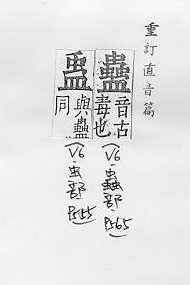 重訂直音篇
蠱
音古
毒也
(V6·蟲部
P565)
䀌
與蠱
同
(V6·虫部
P555)